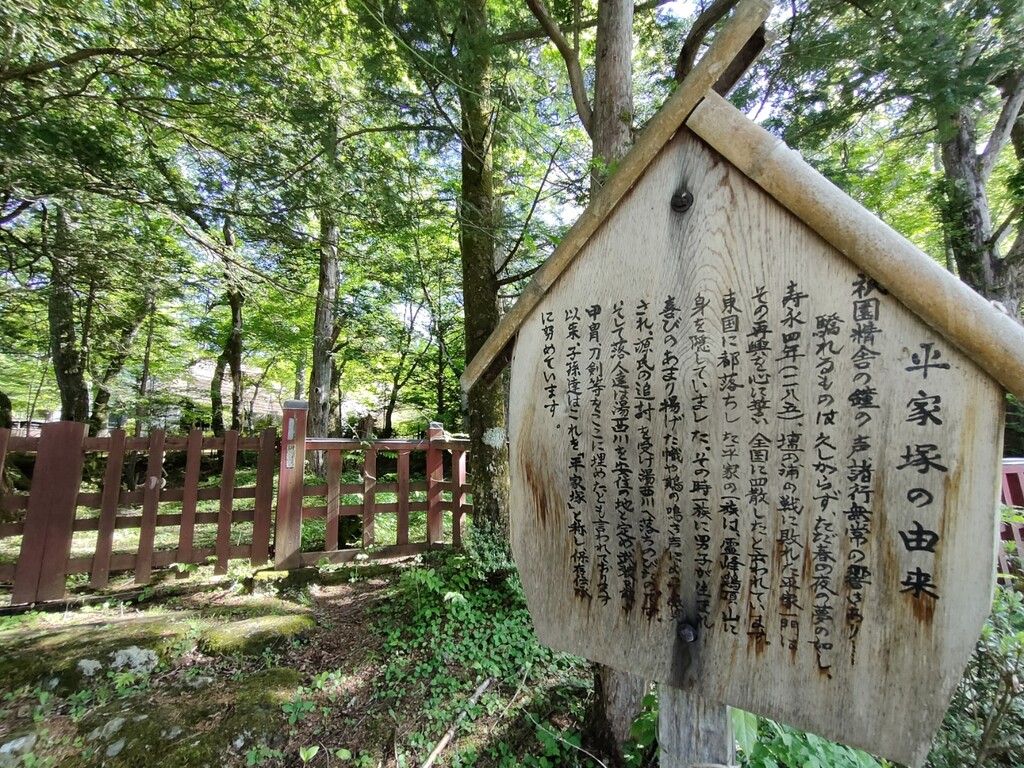 平家塚の由来
祇園精舎の鐘の声諸行無常の響きあり…
驕れるものは久しからず、ただ春の夜の夢の如し
寿永四年(一一八五)、壇の浦の戦に敗れた平家一門は
その再興を心に誓い全国に四散したと云われています
東国に部落ちした平家の一族は、霊峰鶏頂山に
身を隠していました、その時一族に男子が生まれ
喜びのあまり揚げた幟や鶏の鳴き声により
され、源氏の追討を受け湯西川に落ちのび
そして落人達は湯西川を安住の地と定め
甲冑、刀剣等をここに埋めたとも言われております
以来、子孫達はこれを「平家塚」と称し、保存
に努めています。